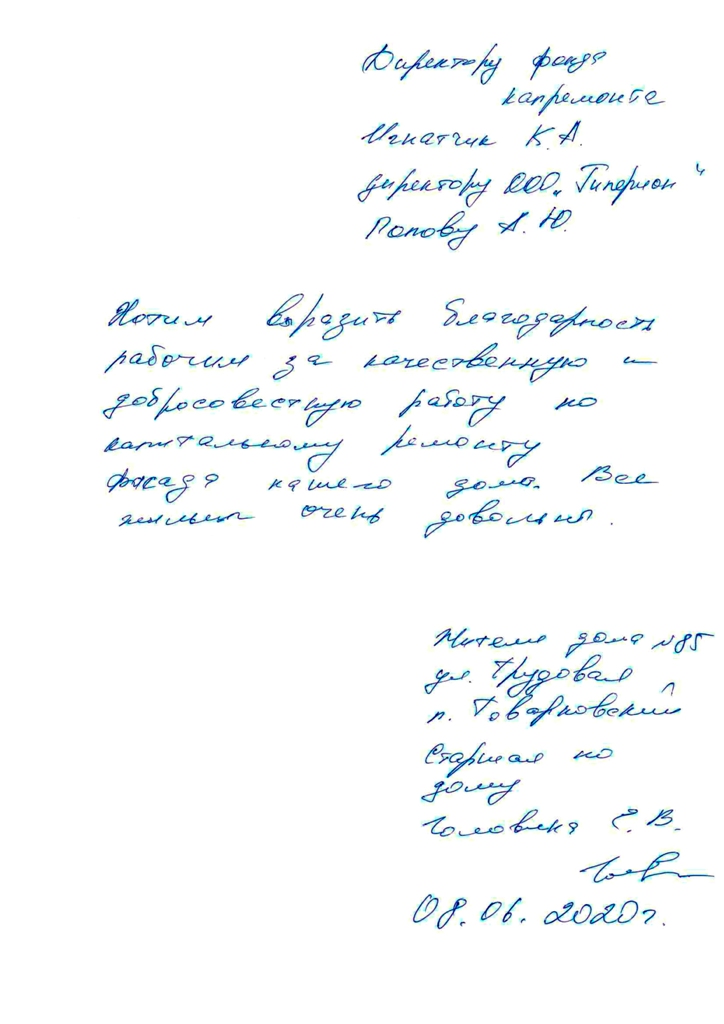 Директору фонда
капремонта
Игнатчик К.А.
директору ООО „Гиперион"
Попову А.Ю.
Хотим выразить благодарность
рабочим за качественную и
добросовестную работу по
капитальному ремонту
фасада нашего дома. Все
жильцы очень довольны.
Жители дома №85
ул. Трудовая
п. Товарковский
Старшая по
дому
Головина Е.В.
08.06.2020г.